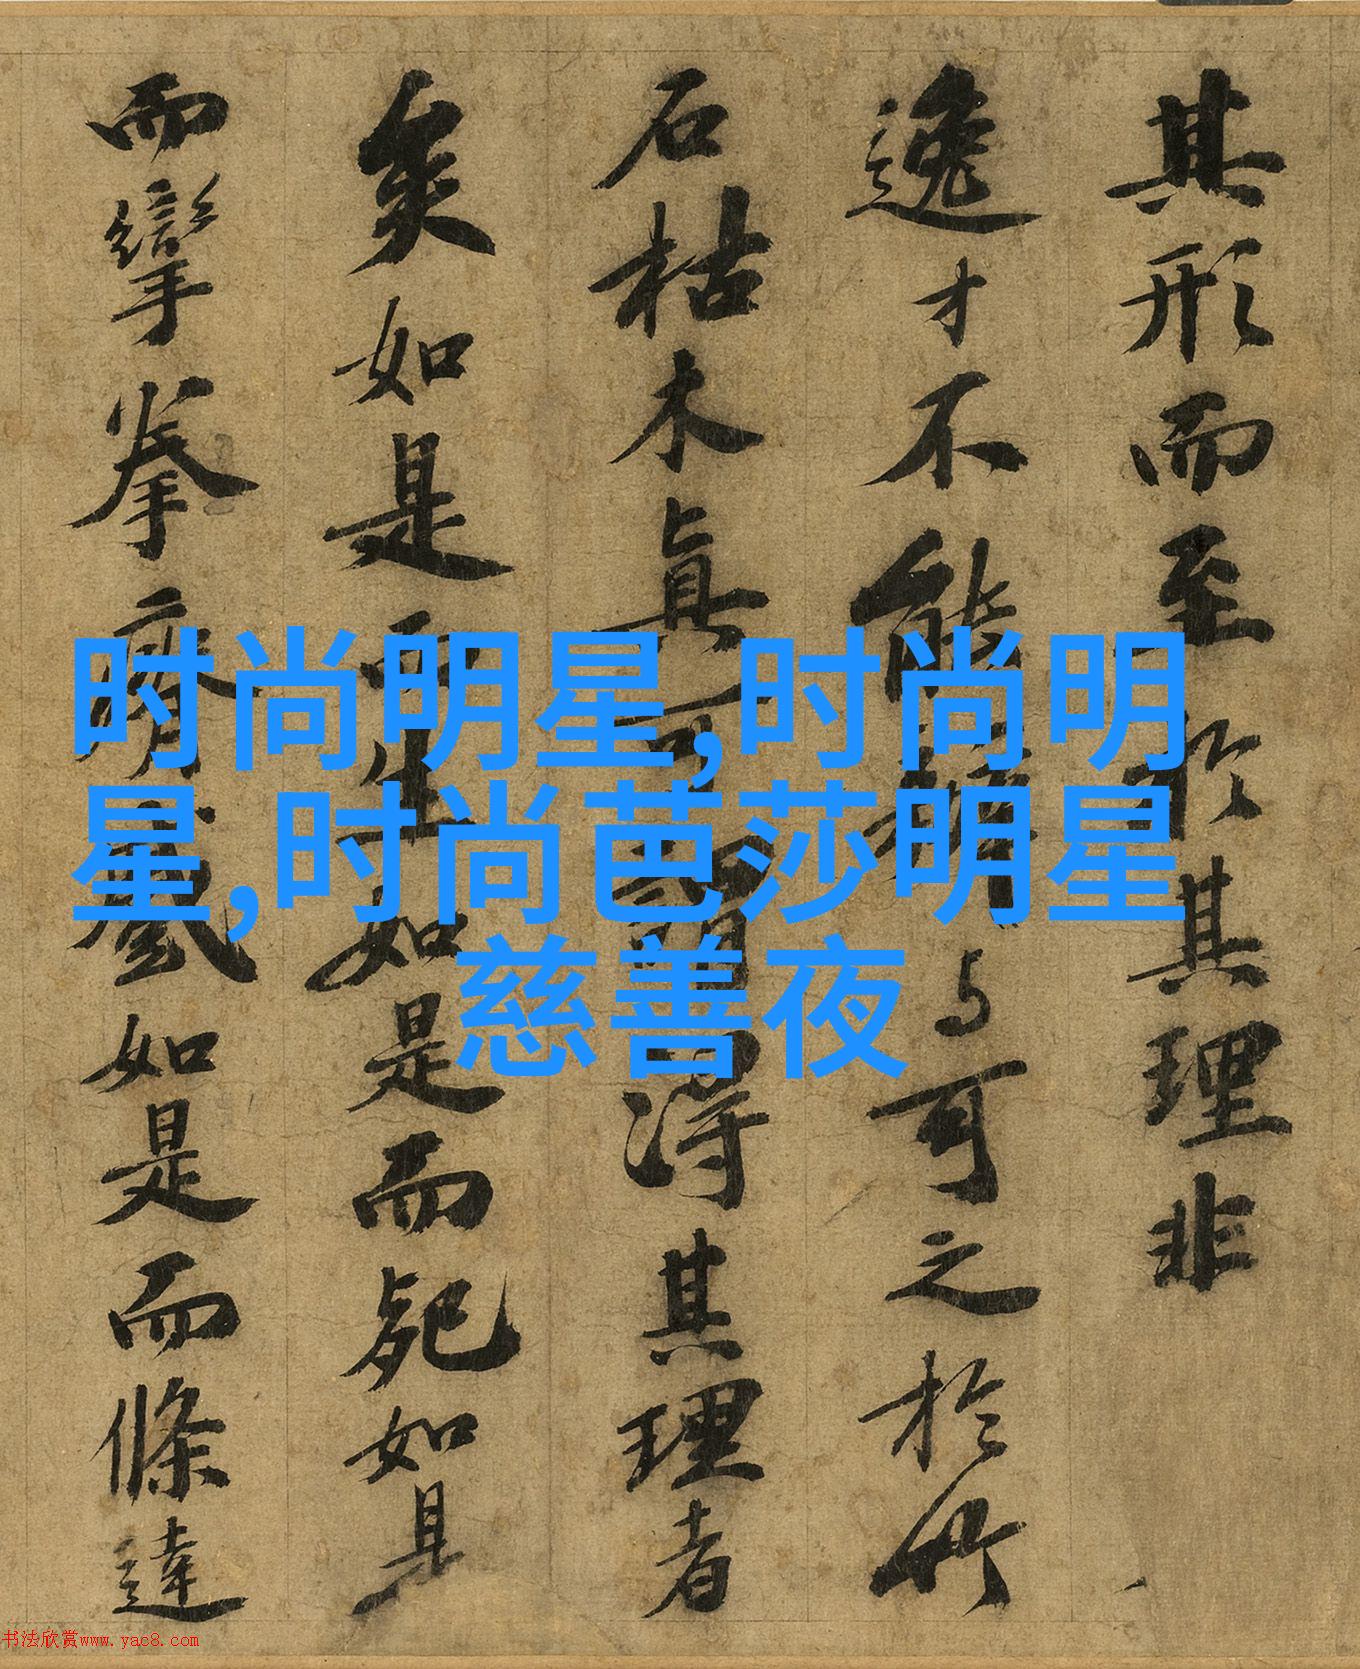 其形而至於其理非
逸才不能辨与可之於竹
石枯木真可謂得其理者
矣如是而生如是而死如是
而攣拳瘠蹙如是而條達
时尚明星,时尚明
星,时尚芭莎明星
慈善夜
书法欣赏www.yac8.com